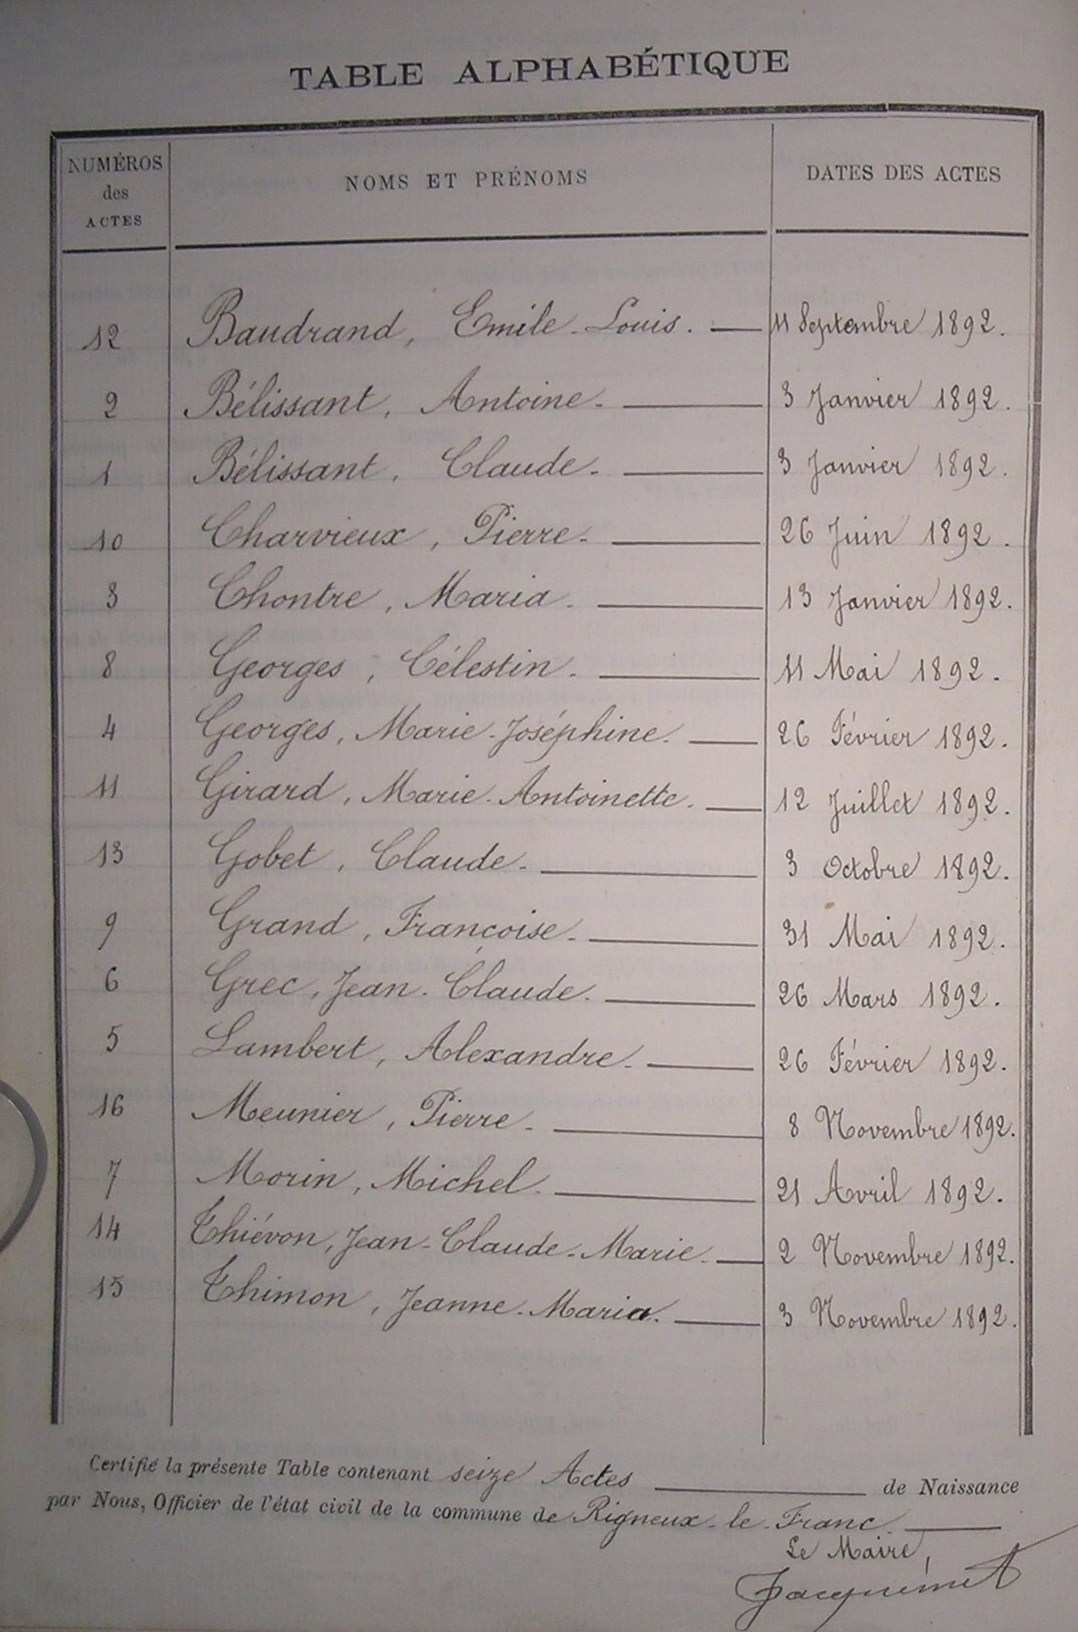 TABLE ALPHABÉTIQUE
NUMÉROS des ACTES NOMS ET PRÉNOMS DATES DES ACTES
12 Baudrand, Emile-Louis. 11 Septembre 1892.
2 Bélissant, Antoine. 3 Janvier 1892.
1 Bélissant, Claude. 3 Janvier 1892.
10 Charvieux, Pierre. 26 Juin 1892.
3 Chontre, Maria. 13 Janvier 1892.
8 Georges, Célestin. 11 Mai 1892.
4 Georges, Marie-Joséphine. 26 Février 1892.
11 Girard, Marie-Antoinette. 12 Juillet 1892.
13 Gobet, Claude. 3 Octobre 1892.
9 Grand, Francoise. 31 Mai 1892.
6 Grec, Jean-Claude. 26 Mars 1892.
5 Lambert, Alexandre. 26 Février 1892.
16 Meunier, Pierre. 8 Novembre 1892.
7 Morin, Michel. 21 Avril 1892.
14 Thiévon, Jean-Claude-Marie. 2 Novembre 1892.
15 Thimon, Jeanne-Maria. 3 Novembre 1892.
Certifié la présente Table contenant seize Actes de Naissance
par Nous, Officier de l'état civil de la commune de Rigneux-le-Franc.
Le Maire,
Jacquemet